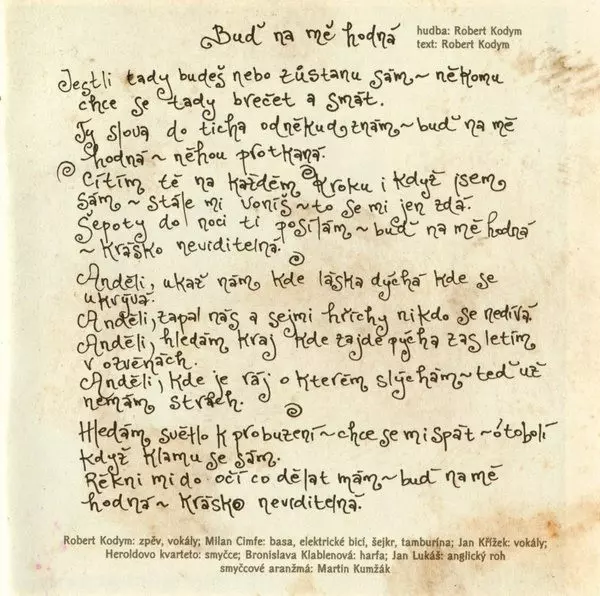 Buď na mě hodná
hudba: Robert Kodym
text: Robert Kodym
Jestli tady budeš nebo zůstanu sám~ někomu
chce se tady brečet a smát.
Ty slova do ticha odněkud znám~ buď na mě
hodná~ něhou protkaná.
Cítím tě na každém kroku i když jsem
sám~ stále mi voníš~ to se mi jen zdá.
Šepoty do noci ti posílám~ buď na mě hodná
~ krásko neviditelná.
Anděli, ukaž nám, kde láska dýchá kde se
ukrývá.
Anděli, zapal nás a sejmi hříchy nikdo se nedívá
Anděli, hledám kraj kde zajde pýcha zas letím
v ozvěnách.
Anděli, kde je ráj o kterém slýchám~ teď už
nemám strach.
Hledám světlo k probuzení~ chce se mi spát ~ ó to bolí
když klamu se sám.
Řekni mi do očí co dělat mám~ buď na mě
hodná~ krásko neviditelná.
Robert Kodym: zpěv, vokály; Milan Cimfe: basa, elektrické bicí, šejkr, tamburína; Jan Křížek: vokály;
Heroldovo kvarteto: smyčce; Bronislava Klablenová: harfa; Jan Lukáš: anglický roh
smyčcové aranžmá: Martin Kumžák